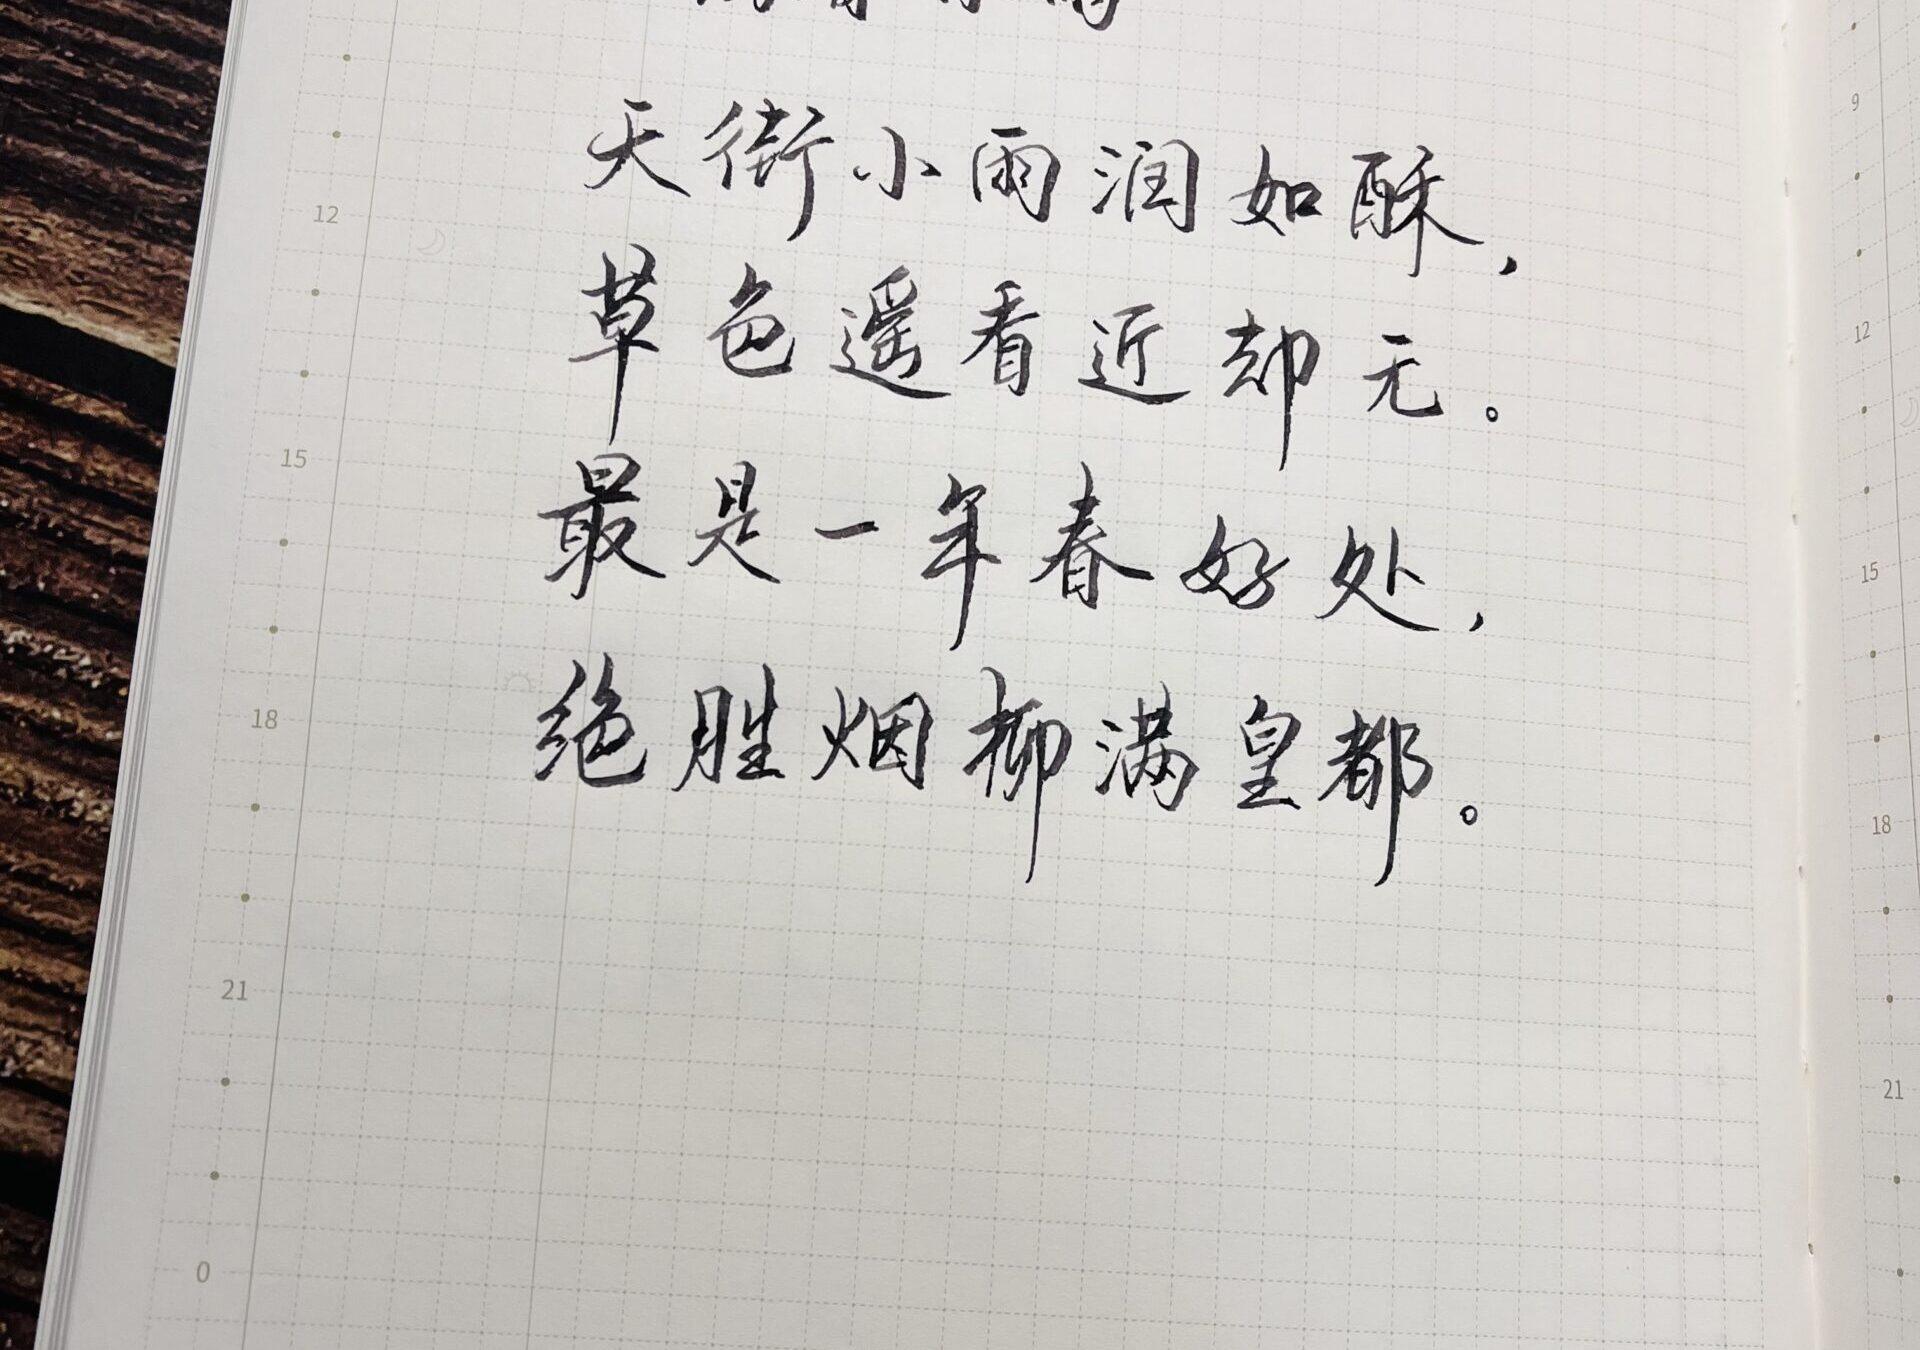 天街小雨润如酥，
草色遥看近却无。
最是一年春好处，
绝胜烟柳满皇都。
12
15
18
21
0
9
12
15
18
21